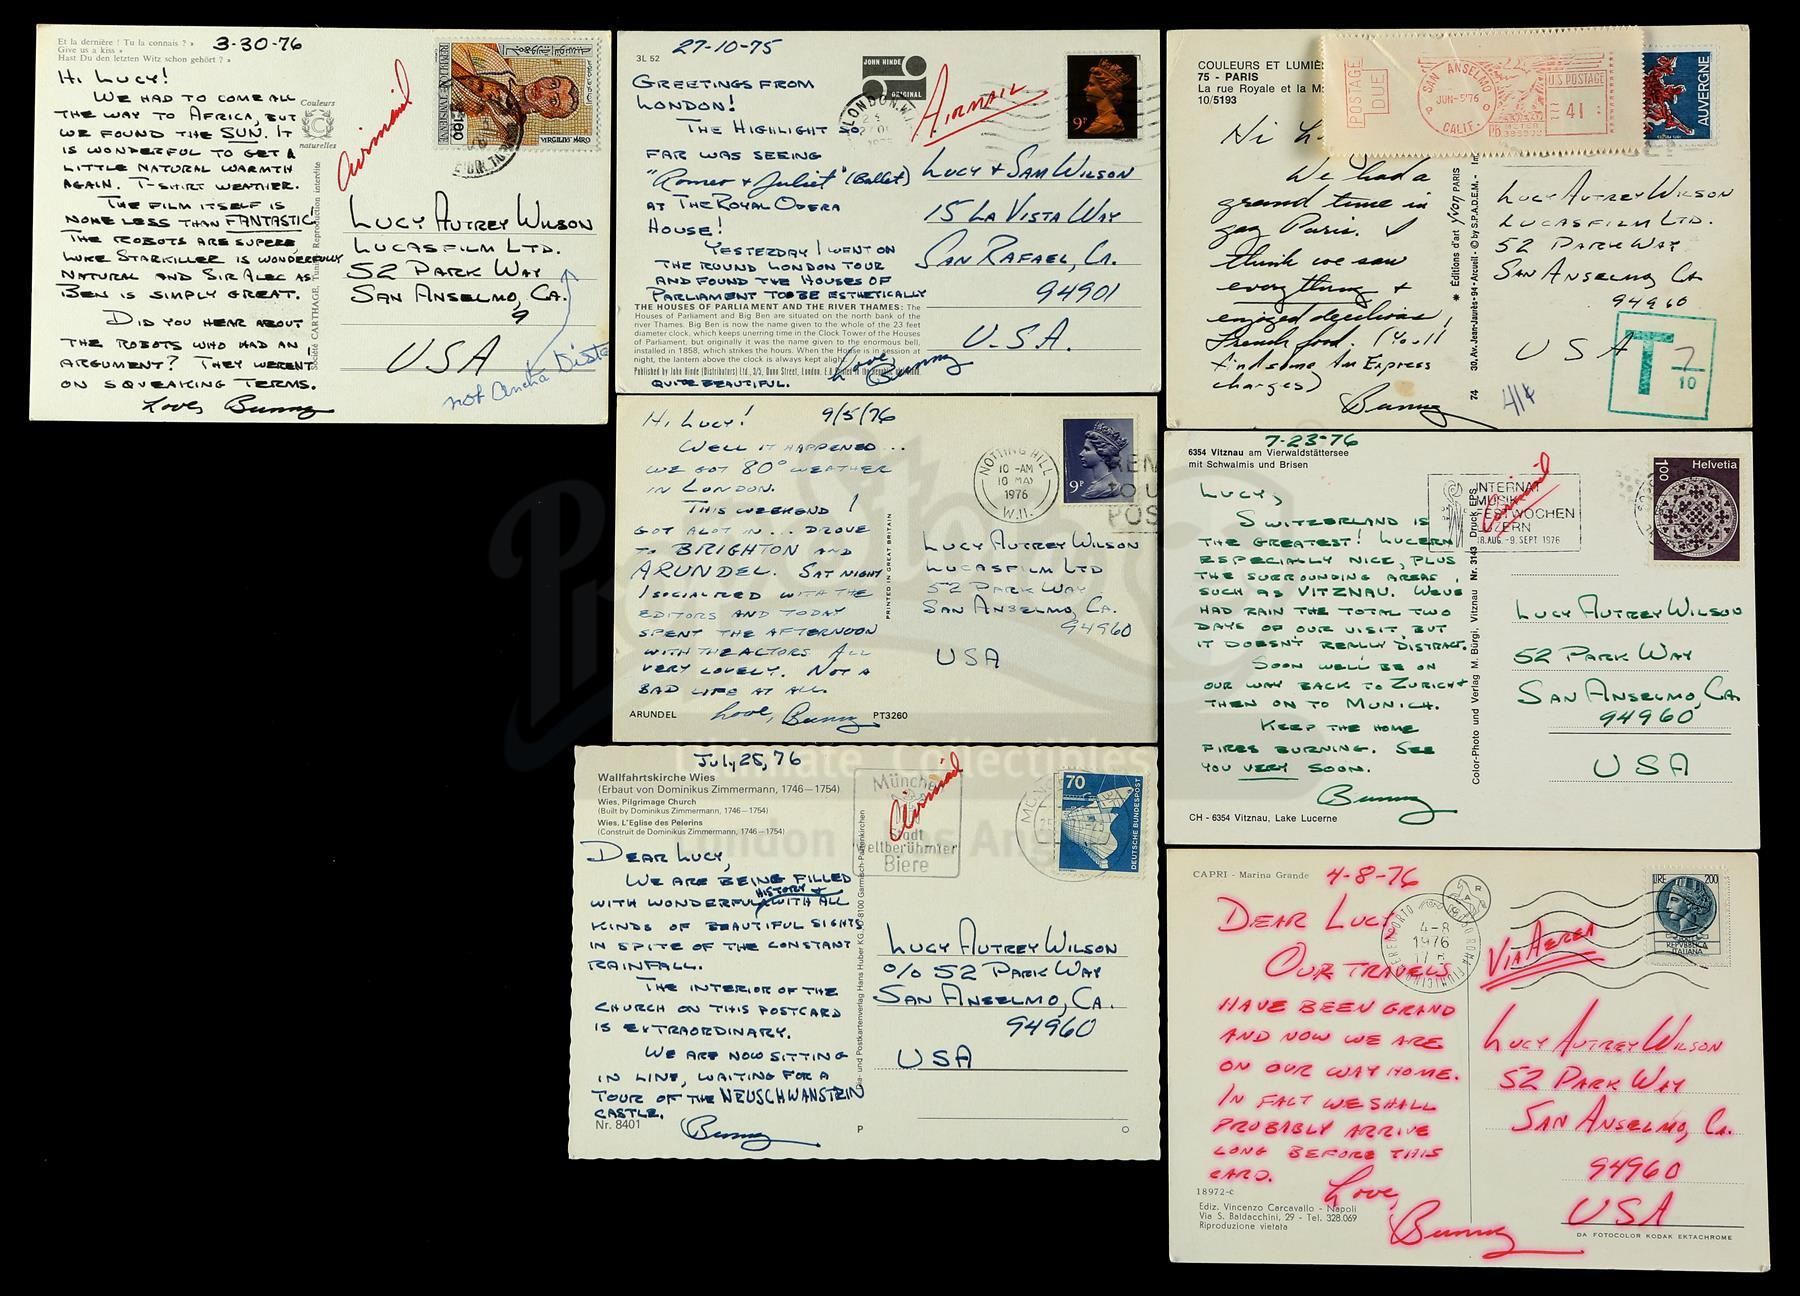 Et la dernière ! Tu la connais ? »
Give us a kiss »
Hast Du den letzten Witz schon gehört ? »
3-30-76
Hi Lucy!
We had to come all
the way to Africa, but
we found the SUN. It
is wonderful to get a
little natural warmth
again. T-shirt weather.
The film itself is
none less than FANTASTIC!
The robots are superb,
Luke Starkiller is wonderfully
natural and Sir Alec as
Ben is simply great.
Did you hear about
the robots who had an
argument? They weren't
on squeaking terms.
Love, Bunny
Couleurs
naturelles
Société CARTHAGE, Reproduction interdite
airmail
REPUBLIQUE TUNISIENNE
VIRGILIUS MARO
Lucy Autrey Wilson
Lucasfilm Ltd.
52 Park Way
San Anselmo, Ca.
9
USA
27-10-75
3L 52
JOHN HINDE
ORIGINAL
Greetings from
London!
The highlight so
far was seeing
"Romeo + Juliet" (Ballet)
at the Royal Opera
House!
Yesterday I went on
the Round London Tour
and found the Houses of
Parliament to be esthetically
THE HOUSES OF PARLIAMENT AND THE RIVER THAMES: The
Houses of Parliament and Big Ben are situated on the north bank of the
river Thames. Big Ben is now the name given to the whole of the 23 feet
diameter clock, which keeps unerring time in the Clock Tower of the Houses
of Parliament, but originally it was the name given to the enormous bell,
installed in 1858, which strikes the hours. When the House is in session at
night, the lantern above the clock is always kept alight.
Published by John Hinde (Distributors) Ltd.
quite beautiful.
Love, Bunny
LONDON
Airmail
9P
Lucy + Sam Wilson
15 La Vista Way
San Rafael, Ca.
94901
U.S.A.
COULEURS ET LUMIÈ
75 - PARIS
La rue Royale et la M
10/5193
POSTAGE DUE
SAN ANSELMO
JUN-5'76
CALIF.
U.S. POSTAGE
41
PB METER
AUVERGNE
Hi L
We had a
grand time in
gay Paris. I
think we saw
everything +
enjoyed delicious
French food. (You'll
find some Am Express
charges)
Bunny
Éditions d'art yvon PARIS
30, Av. Jean-Jaurès - 94 - Arcueil - © by S.P.A.D.E.M.
74
Lucy Autrey Wilson
Lucasfilm Ltd.
52 Park Way
San Anselmo, Ca
94960
USA
T 7/10
Hi, Lucy! 9/5/76
Well it happened...
we got 80° weather
in London.
This weekend I
got alot in... drove
to BRIGHTON and
ARUNDEL. Sat night
I socialized with the
editors and today
spent the afternoon
with the actors. All
very lovely. Not a
bad life at all.
Love, Bunny
ARUNDEL PT3260
PRINTED IN GREAT BRITAIN
NOTTING HILL
10 -AM
10 MAY
1976
W.11.
9P
Lucy Autrey Wilson
Lucasfilm Ltd
52 Park Way
San Anselmo, Ca.
94960
USA
7-23-76
6354 Vitznau am Vierwaldstättersee
mit Schwalmis und Brisen
Lucy,
Switzerland is
the greatest! Lucern
especially nice, plus
the surrounding areas,
such as Vitznau. We've
had rain the total two
days of our visit, but
it doesn't really distract.
Soon we'll be on
our way back to Zurich +
then on to Munich.
Keep the home
fires burning. See
you very soon.
Bunny
CH - 6354 Vitznau, Lake Lucerne
Color-Photo und Verlag M. Bürgi, Vitznau Nr. 3143 Druck EPS
INTERNAT
MUSIK
FESTWOCHEN
LUZERN
18. AUG. - 9. SEPT 1976
airmail
100 Helvetia
Lucy Autrey Wilson
52 Park Way
San Anselmo, Ca.
94960
USA
July 25, 76
Wallfahrtskirche Wies
(Erbaut von Dominikus Zimmermann, 1746—1754)
Wies, Pilgrimage Church
(Built by Dominikus Zimmermann, 1746—1754)
Wies, L'Eglise des Pelerins
(Construit de Dominikus Zimmermann, 1746—1754)
Dear Lucy,
We are being filled
with wonderful history + with all
kinds of beautiful sights
in spite of the constant
rainfall.
The interior of the
church on this postcard
is extraordinary.
We are now sitting
in line, waiting for a
tour of the NEUSCHWANSTEIN
castle.
Bunny
Nr. 8401 P
Bild- und Postkartenverlag Hans Huber KG, D-8100 Garmisch-Partenkirchen
München
Stadt
weltberühmter
Biere
airmail
70
DEUTSCHE BUNDESPOST
Lucy Autrey Wilson
c/o 52 Park Way
San Anselmo, Ca.
94960
USA
CAPRI - Marina Grande 4-8-76
Dear Lucy,
Our travels
have been grand
and now we are
on our way home.
In fact we shall
probably arrive
long before this
card.
Love,
Bunny
18972-c
Ediz. Vincenzo Carcavallo - Napoli
Via S. Baldacchini, 29 - Tel. 328.069
Riproduzione vietata
4-8
1976
Via Aerea
LIRE 200
REPUBBLICA
ITALIANA
Lucy Autrey Wilson
52 Park Way
San Anselmo, Ca.
94960
USA
DA FOTOCOLOR KODAK EKTACHROME
Propstore
Ultimate Collectibles
London Los Angeles